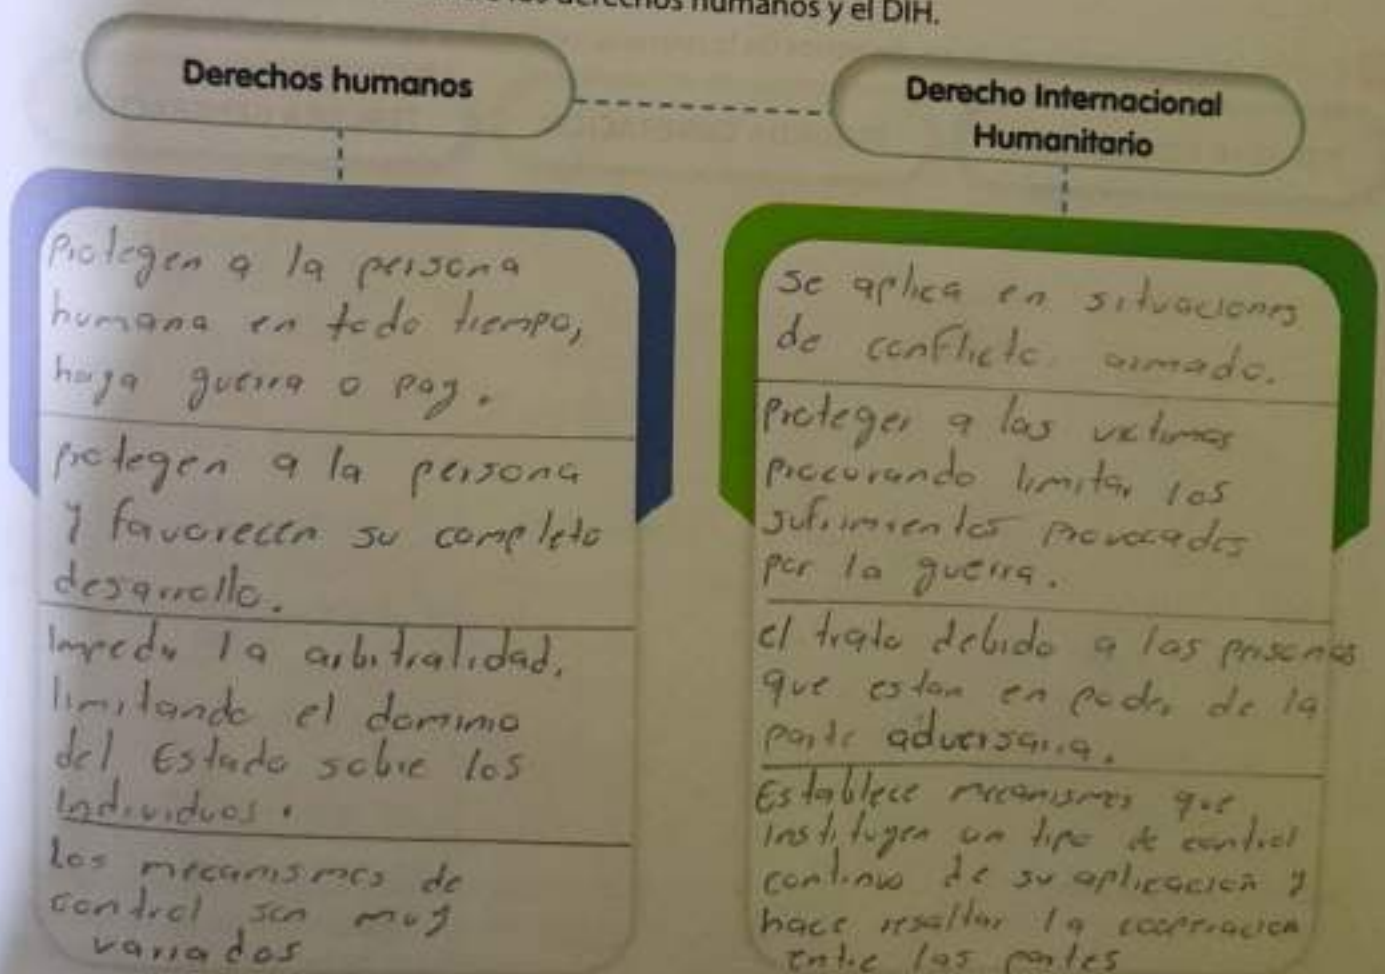 derechos humanos y el DIH.
Derechos humanos
Derecho Internacional
Humanitario
Protegen a la persona
humana en todo tiempo,
haya guerra o paz.
protegen a la persona
y favorecen su completo
desarrollo.
Impedir la arbitralidad.
limitando el dominio
del Estado sobre los
individuos.
Los mecanismos de
control son muy
variados
Se aplica en situaciones
de conflicto armado.
Proteger a las victimas
procurando limitar los
sufrimientos provocados
por la guerra.
el trato debido a las personas
que estan en poder de la
parte adversaria.
Establece mecanismos que
instituyen un tipo de control
continuo de su aplicación y
hace resaltar la cooperación
entre las partes